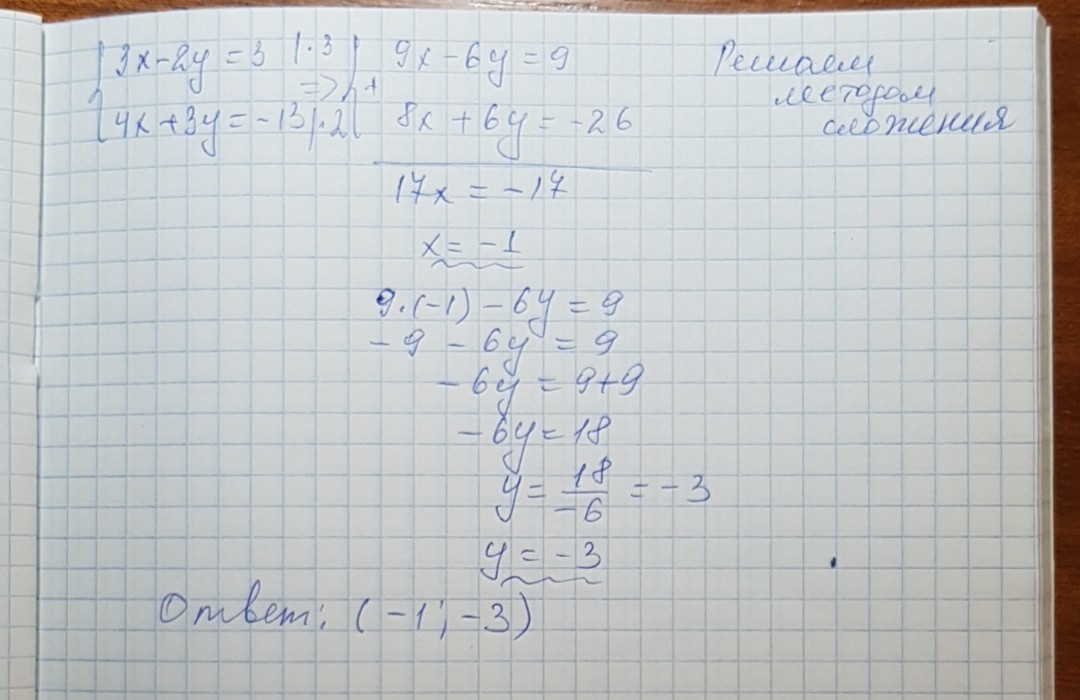 3x-2y=3 |·3 9x-6y=9
=> +
4x+3y=-13 |·2 8x+6y=-26
Решаем
методом
сложения
17x=-17
x=-1
9·(-1)-6y=9
-9-6y=9
-6y=9+9
-6y=18
y=18/-6=-3
y=-3
Ответ: (-1; -3)